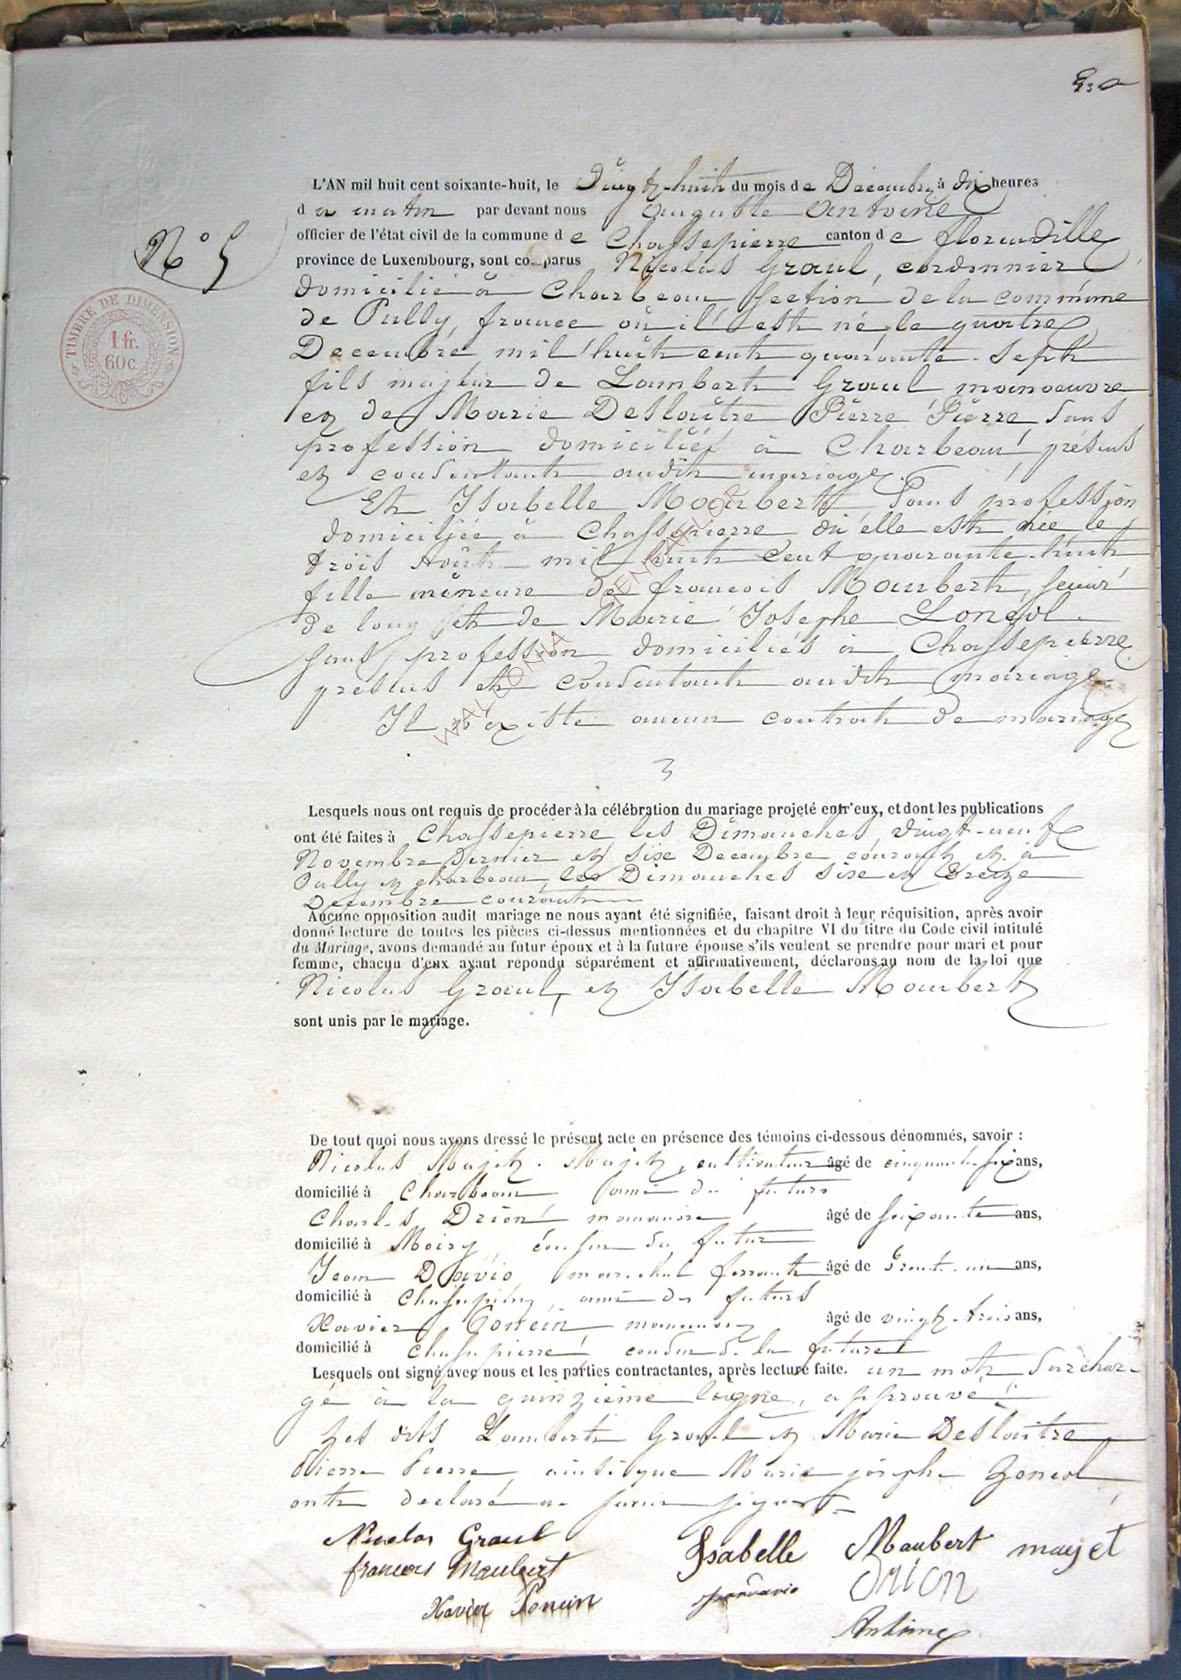 N° 5
TIMBRE DE DIMENSION
1 fr.
60 c.
L'AN mil huit cent soixante-huit, le vingt-huit du mois de Décembre à dix heures
du matin par devant nous Auguste Antoine
officier de l'état civil de la commune de Chassepierre canton de florenville
province de Luxembourg, sont comparus Nicolas Graul, cordonnier
domicilié à Charbeau section de la commune
de Pully, france où il est né, le quatre
Decembre mil huit cent quarante-sept
fils majeur de Lambert Graul manoeuvre
et de Marie Deslaître Pierre Pierre sans
profession domiciliés à Charbeau présens
et consentant audit mariage.
Et Isabelle Maubert sans profession
domiciliée à Chassepierre où elle est née le
trois Août mil huit cent quarante-huit
fille mineure de francois Maubert, scieur
de long et de Marie Josephe
sans profession domiciliés à Chassepierre
présens et consentant audit mariage
Il n'existe aucun contrat de mariage
WALLONIA GENEALOR ©
Lesquels nous ont requis de procéder à la célébration du mariage projeté entr'eux, et dont les publications
ont été faites à Chassepierre les Dimanches vingt-neuf
Novembre dernier et six Decembre courant et à
Pully et charbeau les Dimanches six et treize
Decembre courant
Aucune opposition audit mariage ne nous ayant été signifiée, faisant droit à leur réquisition, après avoir
donné lecture de toutes les pièces ci-dessus mentionnées et du chapitre VI du titre du Code civil intitulé
du Mariage, avons demandé au futur époux et à la future épouse s'ils veulent se prendre pour mari et pour
femme, chacun d'eux ayant répondu séparément et affirmativement, déclarons au nom de la loi que
Nicolas Graul, et Isabelle Maubert
sont unis par le mariage.
De tout quoi nous avons dressé le présent acte en présence des témoins ci-dessous dénommés, savoir :
Nicolas Majet-Majet, cultivateur âgé de cinquante-six ans,
domicilié à Charbeau ami du futur
Charles manoeuvre âgé de soixante ans,
domicilié à Moiry, cousin du futur
Jean Davio, marechal ferrant âgé de trente-un ans,
domicilié à Chassepierre, ami des futurs
Xavier Poncin manoeuvre âgé de vingt-trois ans,
domicilié à Chassepierre cousin de la future
Lesquels ont signé avec nous et les parties contractantes, après lecture faite. un mot surchar-
gé à la quinzième ligne, approuvé
Les dits Lambert Graul et Marie Deslaitre
Pierre Pierre, ainsi que Marie josephe
ont declaré ne savoir signer
Nicolas Graul
Isabelle Maubert majet
francois Maubert
Xavier Poncin
Jean davio
Antoine